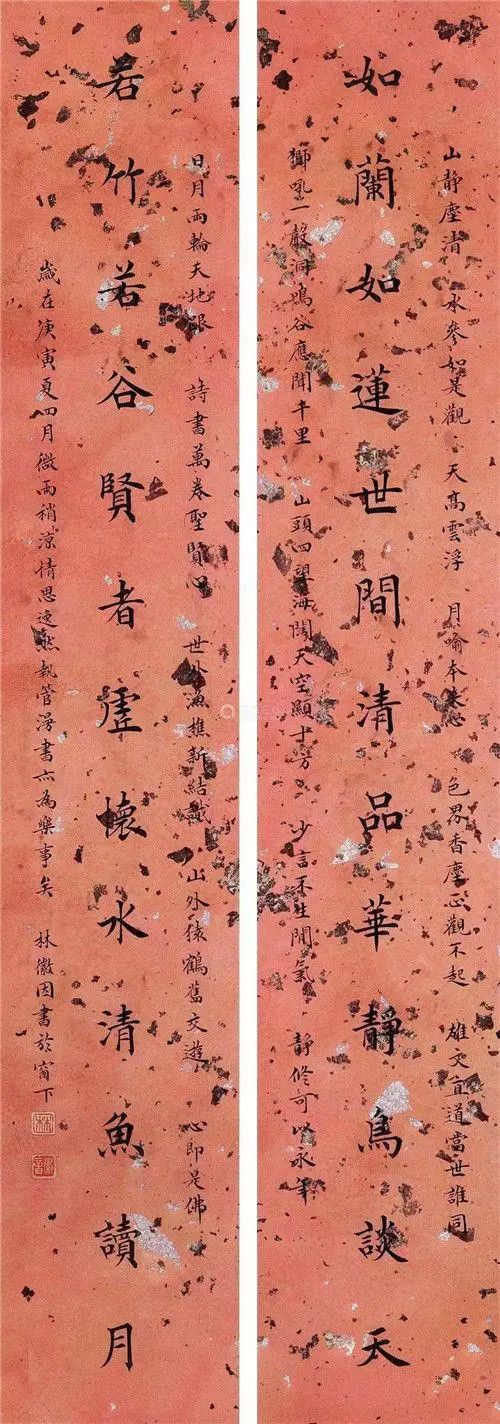 山靜塵清 水參如是觀 天高雲浮 月喻本來心 色界香塵心觀不起 雄文直道當世誰同
如蘭如蓮世間清品華靜鳥談天
獅吼一聲洞鳴谷應聞千里 山頭四望海闊天空顯十方 少言不生閒氣 靜修可以永年
日月兩輪天地眼 詩書萬卷聖賢心 世外漁樵新結識 山外猿鶴舊交遊 心即是佛
若竹若谷賢者虛懷水清魚讀月
歲在庚寅夏四月微雨稍涼情思逸然執管漫書亦為樂事矣 林徽因書於窗下